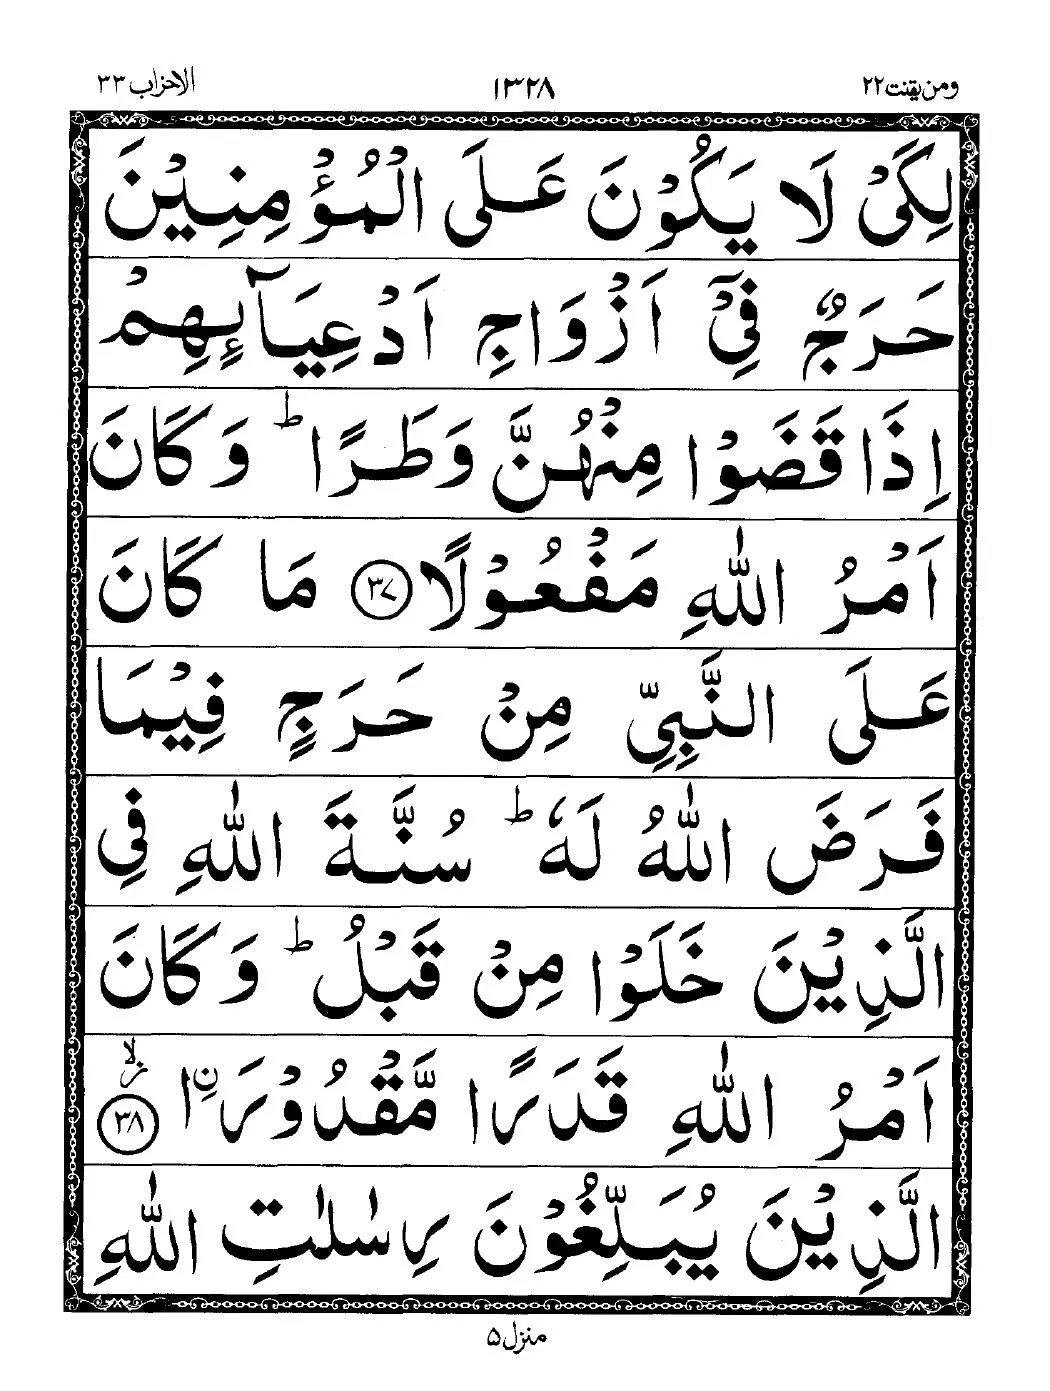 ومن یقنت ۲۲ ۱۳۲۸ الاحزاب ۳۳
لِكَیْ لَا یَكُوْنَ عَلَی الْمُؤْمِنِیْنَ
حَرَجٌ فِیْۤ اَزْوَاجِ اَدْعِیَآىِٕهِمْ
اِذَا قَضَوْا مِنْهُنَّ وَطَرًا ؕ وَ كَانَ
اَمْرُ اللّٰهِ مَفْعُوْلًا ۳۷ مَا كَانَ
عَلَی النَّبِیِّ مِنْ حَرَجٍ فِیْمَا
فَرَضَ اللّٰهُ لَهٗ ؕ سُنَّةَ اللّٰهِ فِی
الَّذِیْنَ خَلَوْا مِنْ قَبْلُ ؕ وَ كَانَ
اَمْرُ اللّٰهِ قَدَرًا مَّقْدُوْرَاۙ ن ِ ۳۸
الَّذِیْنَ یُبَلِّغُوْنَ رِسٰلٰتِ اللّٰهِ
منزل ۵